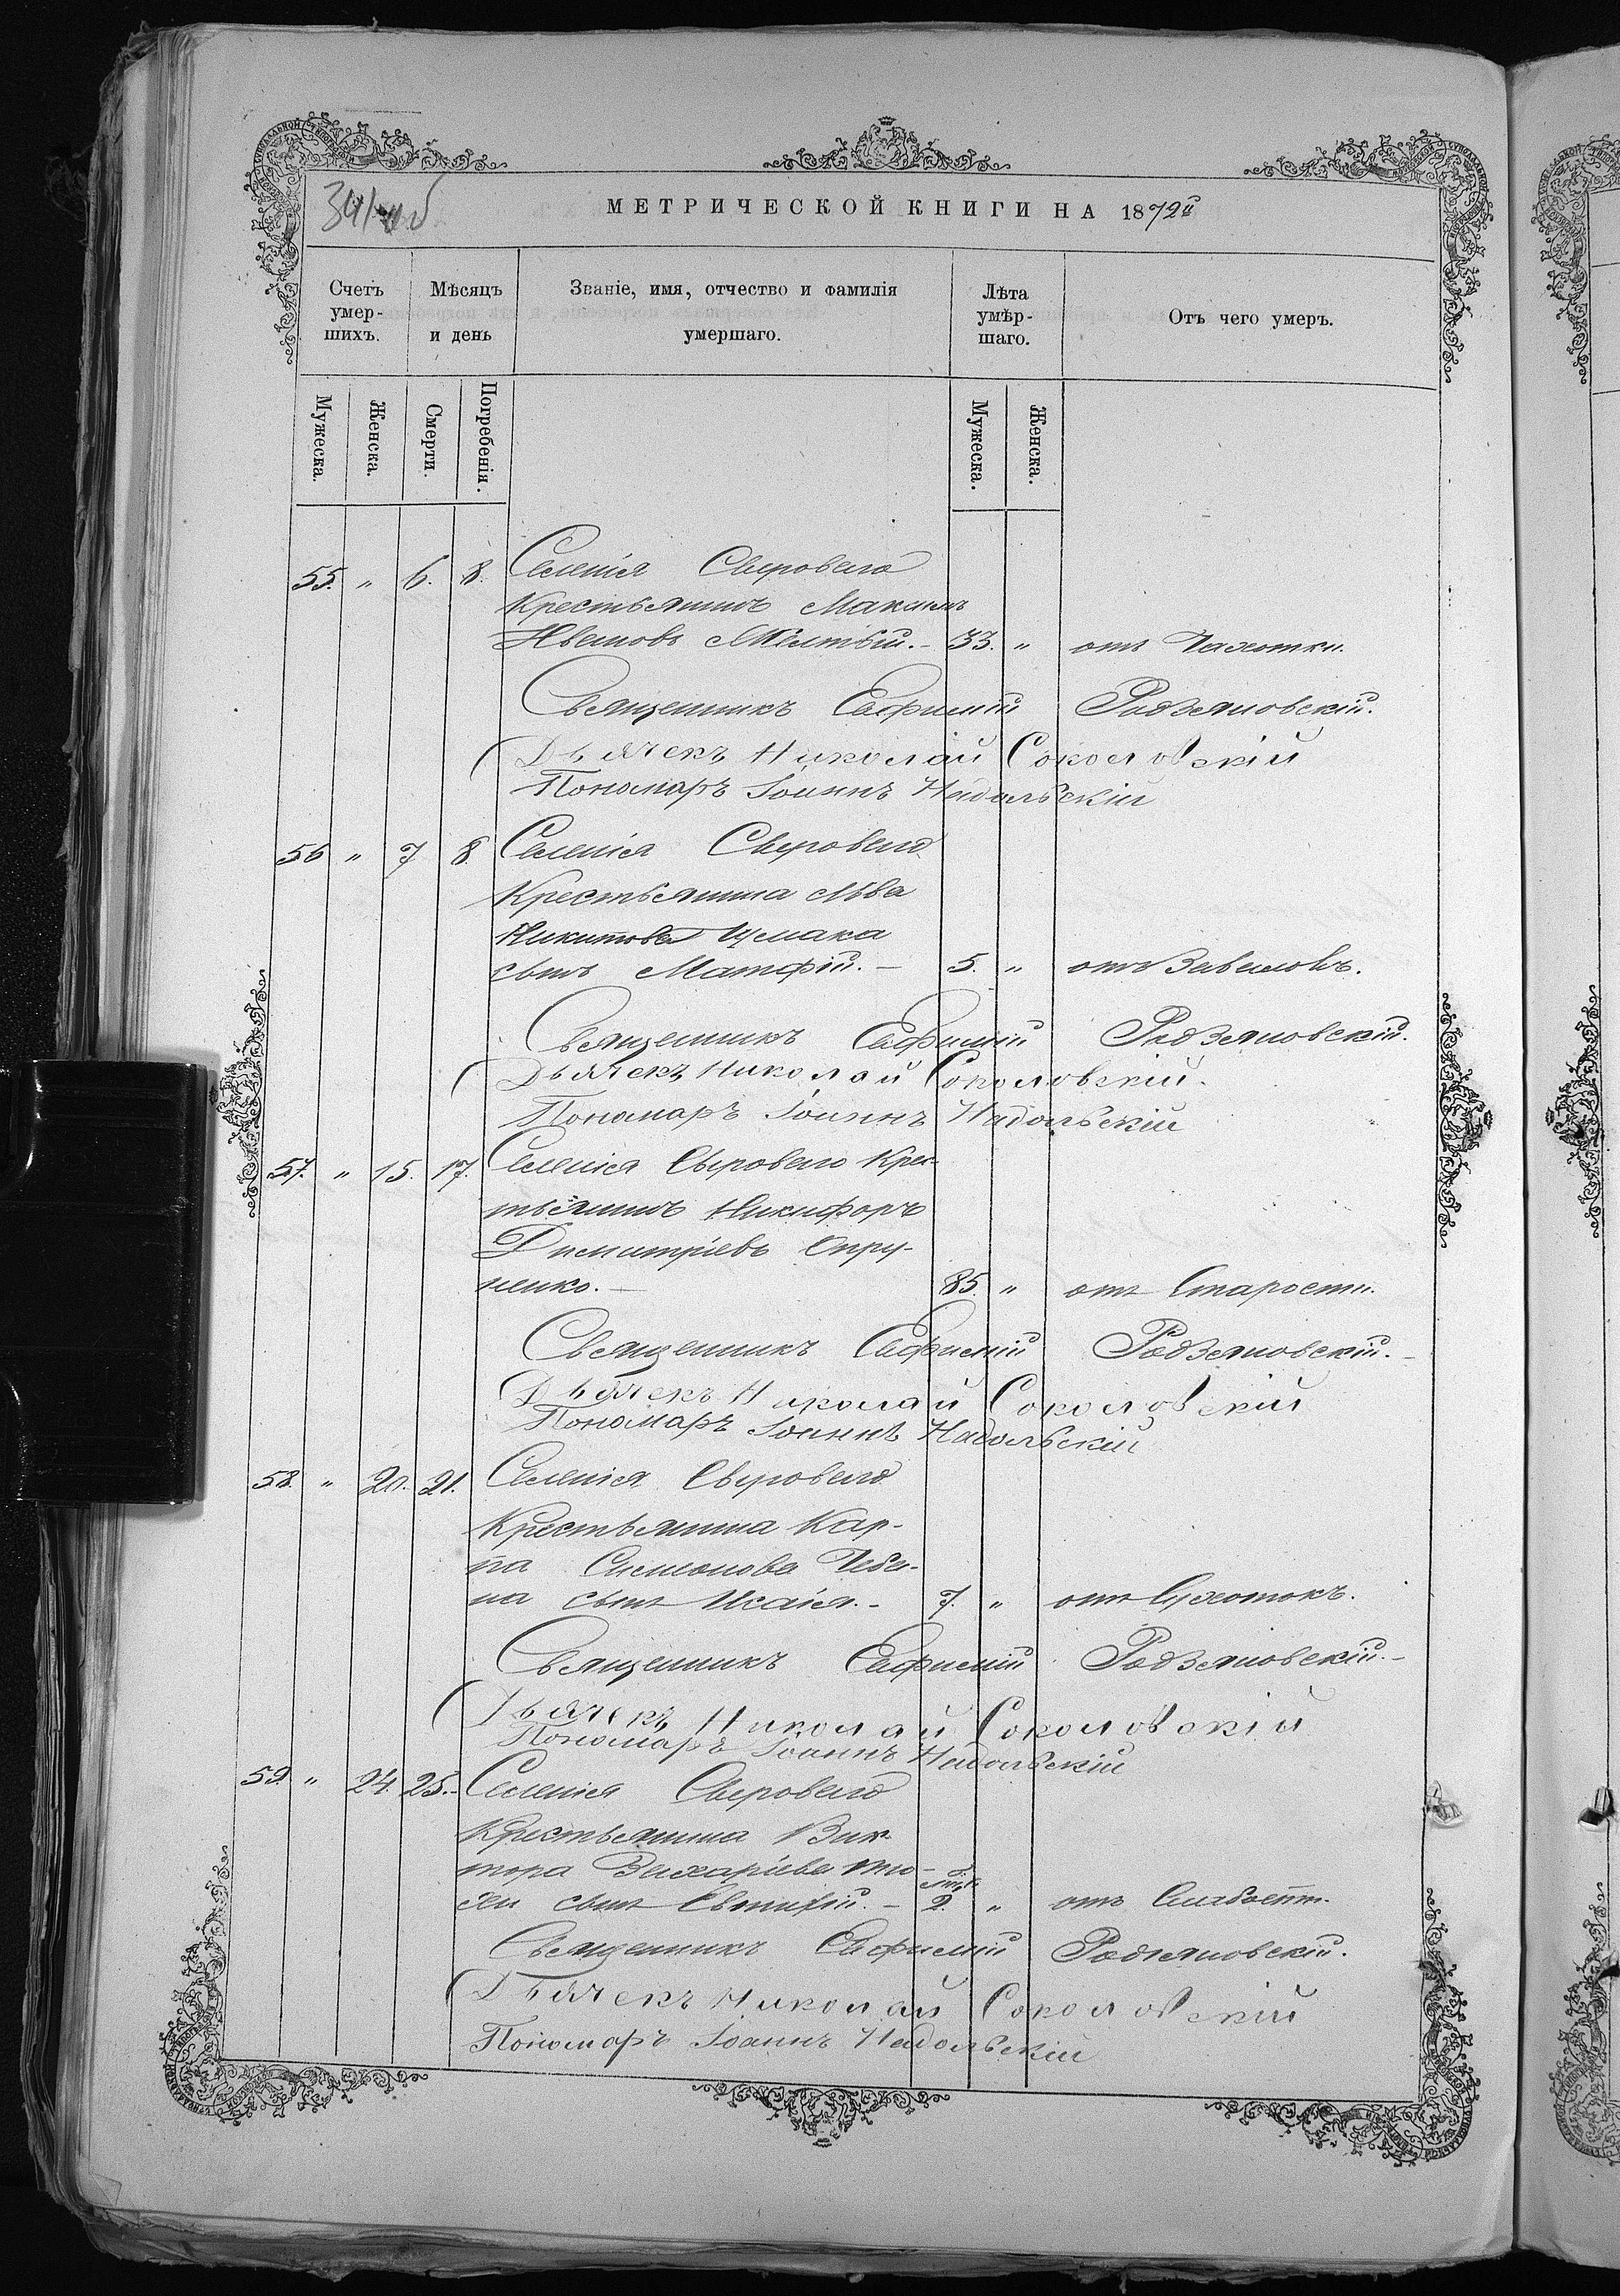 МЕТРИЧЕСКОЙ КНИГИ НА 1872й
Счетъ умерших.
Мѣсяцъ и день
Званіе, имя, отчество и фамилія умершаго.
Лѣта умѣршаго.
Отъ чего умеръ.
Мужеска. Женска. Смерти. Погребенія. Мужеска. Женска.
55. " 6. 8. Селенія Сыроваго
Крестьянинъ Максимъ
Ивановъ Желтый. - 33. " отъ Чахотки.
Священникъ Евфимій Радзяновскій.
Дьячекъ Николай Соколовскій
Пономарь Іоаннъ Надольскій
56 " 7 8. Селенія Сыроваго
Крестьянина Льва
Никитова Чумака
сынъ Матфій. - 5. " отъ Заваловъ.
Священникъ Евфимій Радзяновскій.
Дьячекъ Николай Соколовскій.
Пономарь Іоаннъ Надольскій
57. " 15. 17. Селенія Сыроваго Крес-
тьянинъ Никифоръ
Димитріевъ Опру-
ненко. - 85. " отъ Старости.
Священникъ Евфимій Радзяновскій. -
Дьячекъ Николай Соколовскій
Пономарь Іоаннъ Надольскій
58. " 20. 21. Селенія Сыроваго
Крестьянина Кар-
па Симонова Чеба-
на сынъ Исаія. - 7. " отъ Сухотокъ.
Священникъ Евфимій Радзяновскій. -
Дьячекъ Николай Соколовскій
Пономарь Іоаннъ Надольскій
59. " 24. 25. - Селенія Сыроваго
Крестьянина Вик
тора Захаріева
сынъ Евтихій. - 2. " отъ Слабости.
Священникъ Евфимій Радзяновскій.
Дьячекъ Николай Соколовскій
Пономарь Іоаннъ Надольскій